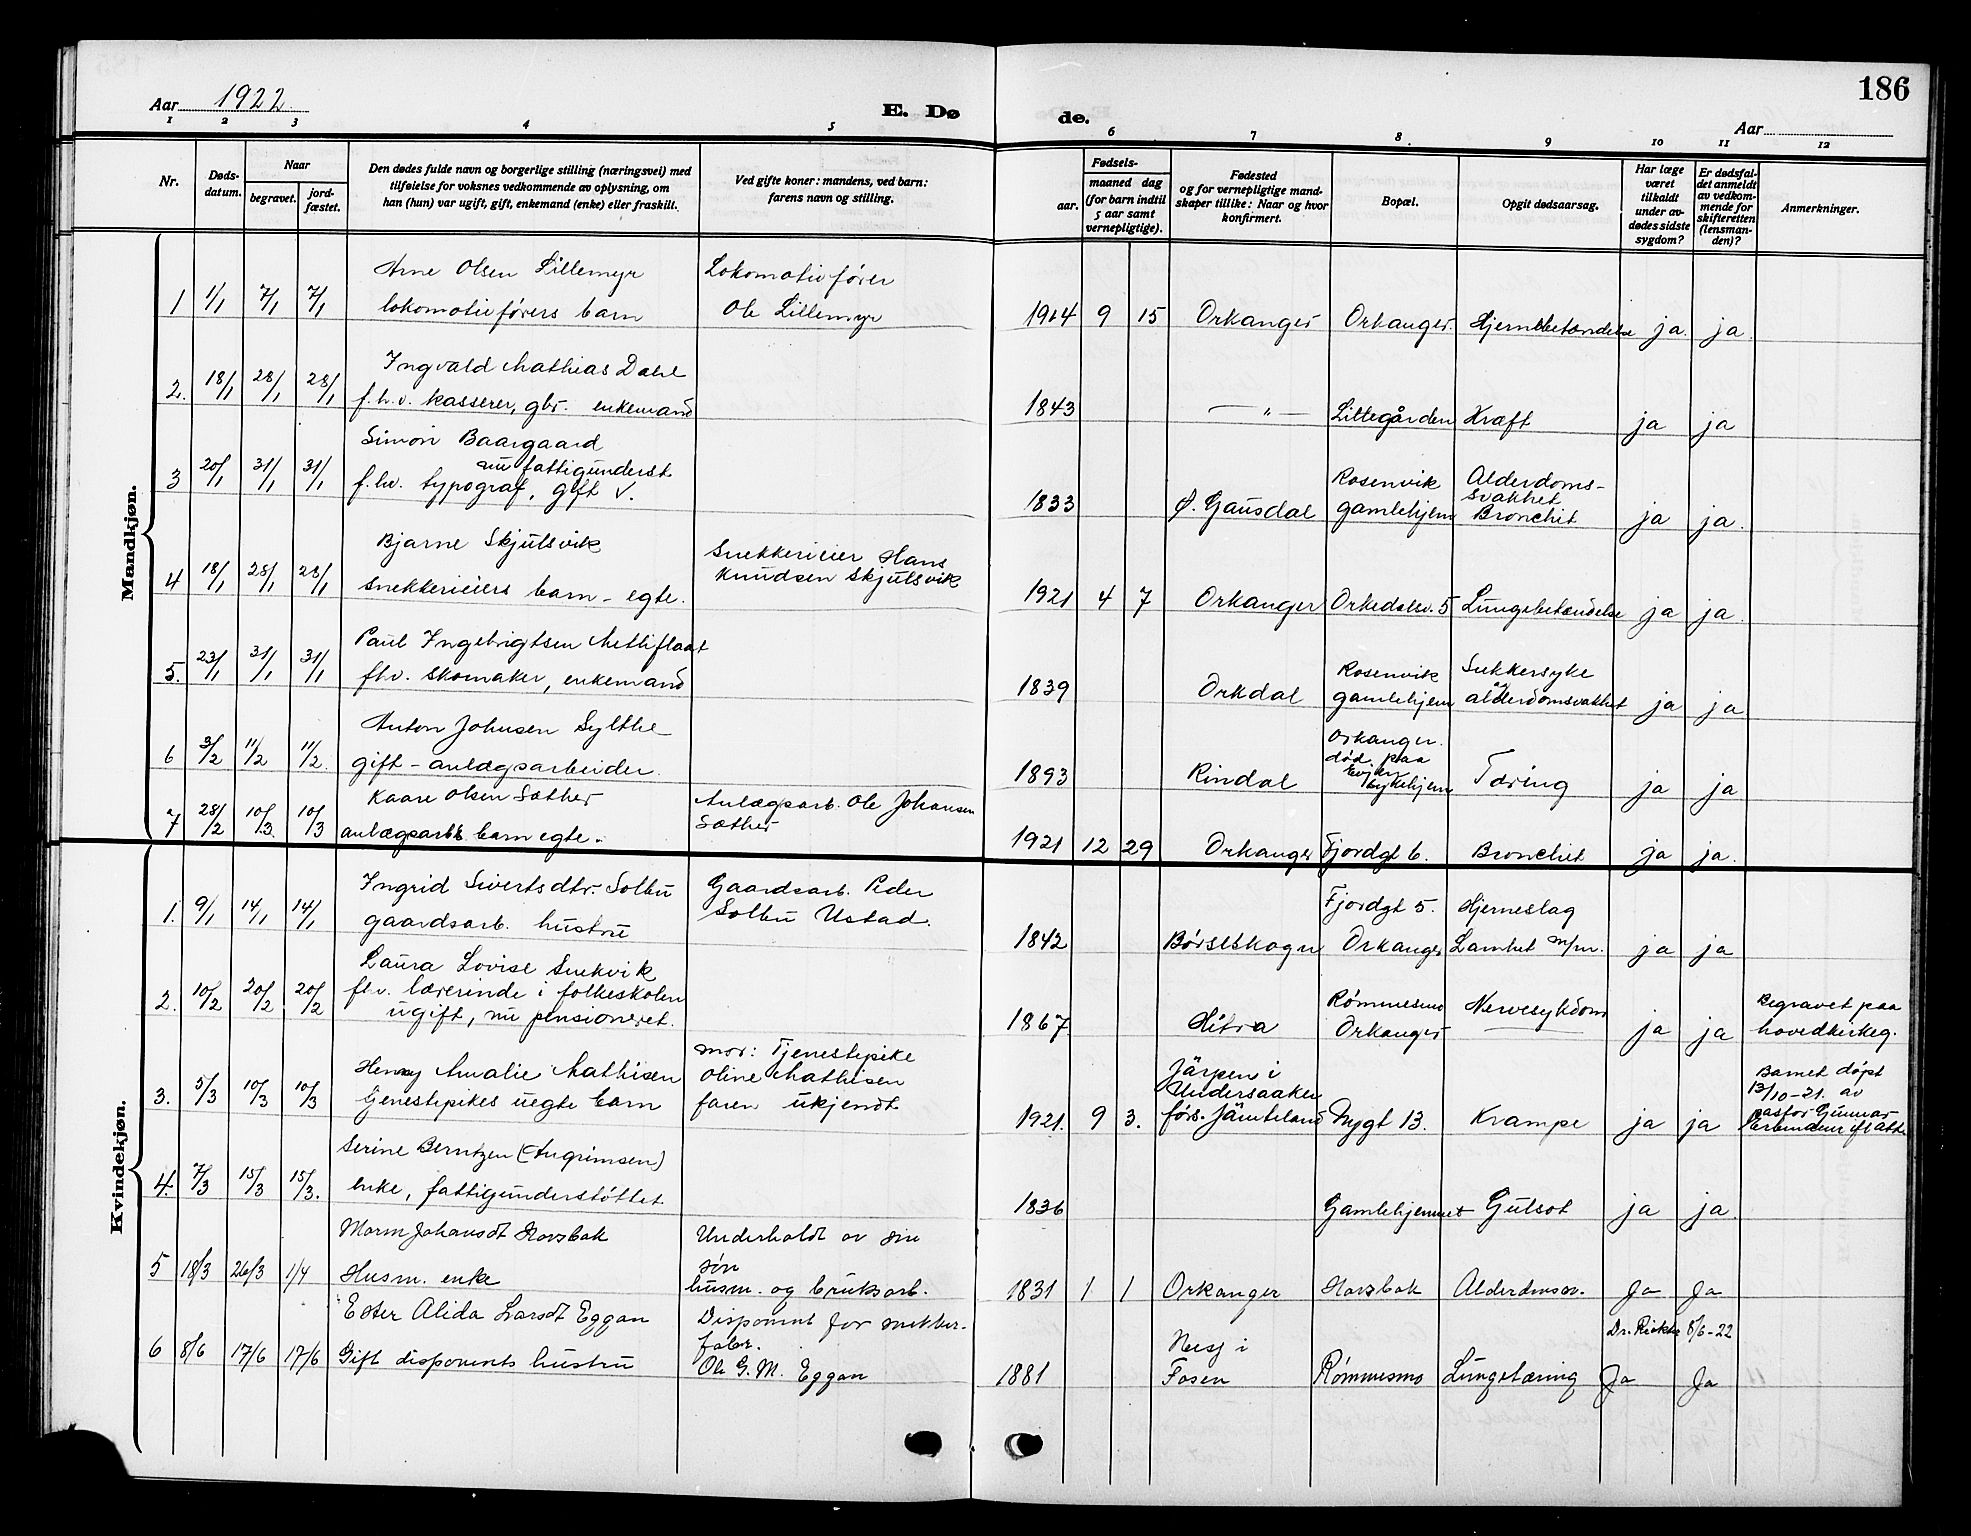 186
Aar 1922.
E. Dø
de.
Aar
1 2 3 4 5 6 7 8. 9 10 11 12
Nr.
Døds-
datum.
Naar
begravet.
jord-
fæstet.
Den dødes fulde navn og borgerlige stilling (næringsvei) med
tilføielse for voksnes vedkommende av oplysning, om
han (hun) var ugift, gift, enkemand (enke) eller fraskilt.
Ved gifte koner: mandens, ved barn:
farens navn og stilling.
Fødsels-
aar.
maaned dag
(for barn indtil
5 aar samt
vernepligtige).
Fødested
og for vernepligtige mand-
skaper tillike: Naar og hvor
konfirmert.
Bopæl.
Opgit dødsaarsag.
Har læge
været
tilkaldt
under av-
dødes sidste
sygdom?
Er dødsfal-
det anmeldt
av vedkom-
mende for
skifteretten
(lensman-
den)?
Anmerkninger.
Mandkjøn.
Arne Olsen Lillemyr Lokomotivfører
1 1/1 7/1 7/1 lokomotivførers barn Ole Lillemyr 1914 9 15 Orkanger Orkanger. Hjernebetændelse ja. ja.
Ingvald Mathias Dahl
2. 18/1 28/1 28/1 f.h.v. kasserer, gbr. enkemand 1843 — " — Lillegården Kræft ja ja
Simon Baargaard
nu fattigunderst
3 20/1 31/1 31/1 f.hv. typograf, gift v. 1833 Ø. Gausdal Rosenvik
gamlehjem Alderdoms-
svakhet
Bronchit ja ja.
Bjarne Skjulsvik Snekkerieier Hans
Knudsen Skjulsvik
4 18/1 28/1 28/1 snekkerieiers barn - egte. 1921 4 7 Orkanger Orkedalsv. 5 Lungebetændelse ja ja.
Paul Ingebrigtsen Metliflaat
5. 23/1 31/1 31/1 fhv. skomaker, enkemand 1839 Orkdal Rosenvik
gamlehjem Sukkersyke
og
alderdomsvakhet ja ja
Anton Johnsen Sylthe
6 3/2 11/2 11/2. gift - anlægsarbeider. 1893 Rindal Orkanger.
død paa
sykehjem Tæring ja ja
Kaare Olsen Sæther Anlægsarb. Ole Johansen
Sæther
7 28/2 10/3. 10/3 anlægsarb. barn egte. 1921 12 29 Orkanger Fjordgt 6. Bronchit ja ja.
Kvindekjøn.
Ingrid Sivertsdtr. Solbu Gaardsarb. Peder
Solbu Ustad.
1. 9/1 14/1 14/1 gaardsarb. hustru 1842 Børseskogn Fjordgt 5.
Orkanger Hjerneslag
Lamhet m/m. ja ja
Laura Lovise Snekvik
fhv. lærerinde i folkeskolen
2. 10/2 20/2 20/2 ugift, nu pensioneret. 1867. Hitra Rømmesmo
Orkanger Nervesykdom ja ja Begravet paa
hovedkirkeg.
Henny Amalie Mathisen mor: Tjenestepike
Oline Mathisen
3. 5/3 10/3 10/3 tjenestepikes uegte barn faren ukjendt 1921. 9 3. Järpen i
Undersaaker
førs. Jämtland Nygt 13. Krampe ja ja Barnet døpt
13/10-21. av
pastor Gunnar
Serine Berntzen (Angrimsen)
4. 7/3 15/3 15/3. enke, fattigunderstøttet 1836 Gamlehjemmet Gulsot ja ja.
Marn Johansdt Horsbak Underholdt av sin
søn
5 18/3 26/3 1/4 Husm. enke husm. og bruksarb. 1831 1 1 Orkanger Horsbak Alderdomssv. Ja Ja
Ester Alida Larsdt Eggan Disponent for snekker-
fabr.
6 8/6 17/6 17/6 Gift disponents hustru Ole G. M. Eggan 1881 Nesj i
Fosen Rømmesmo Lungetæring Ja Ja
8/6-22